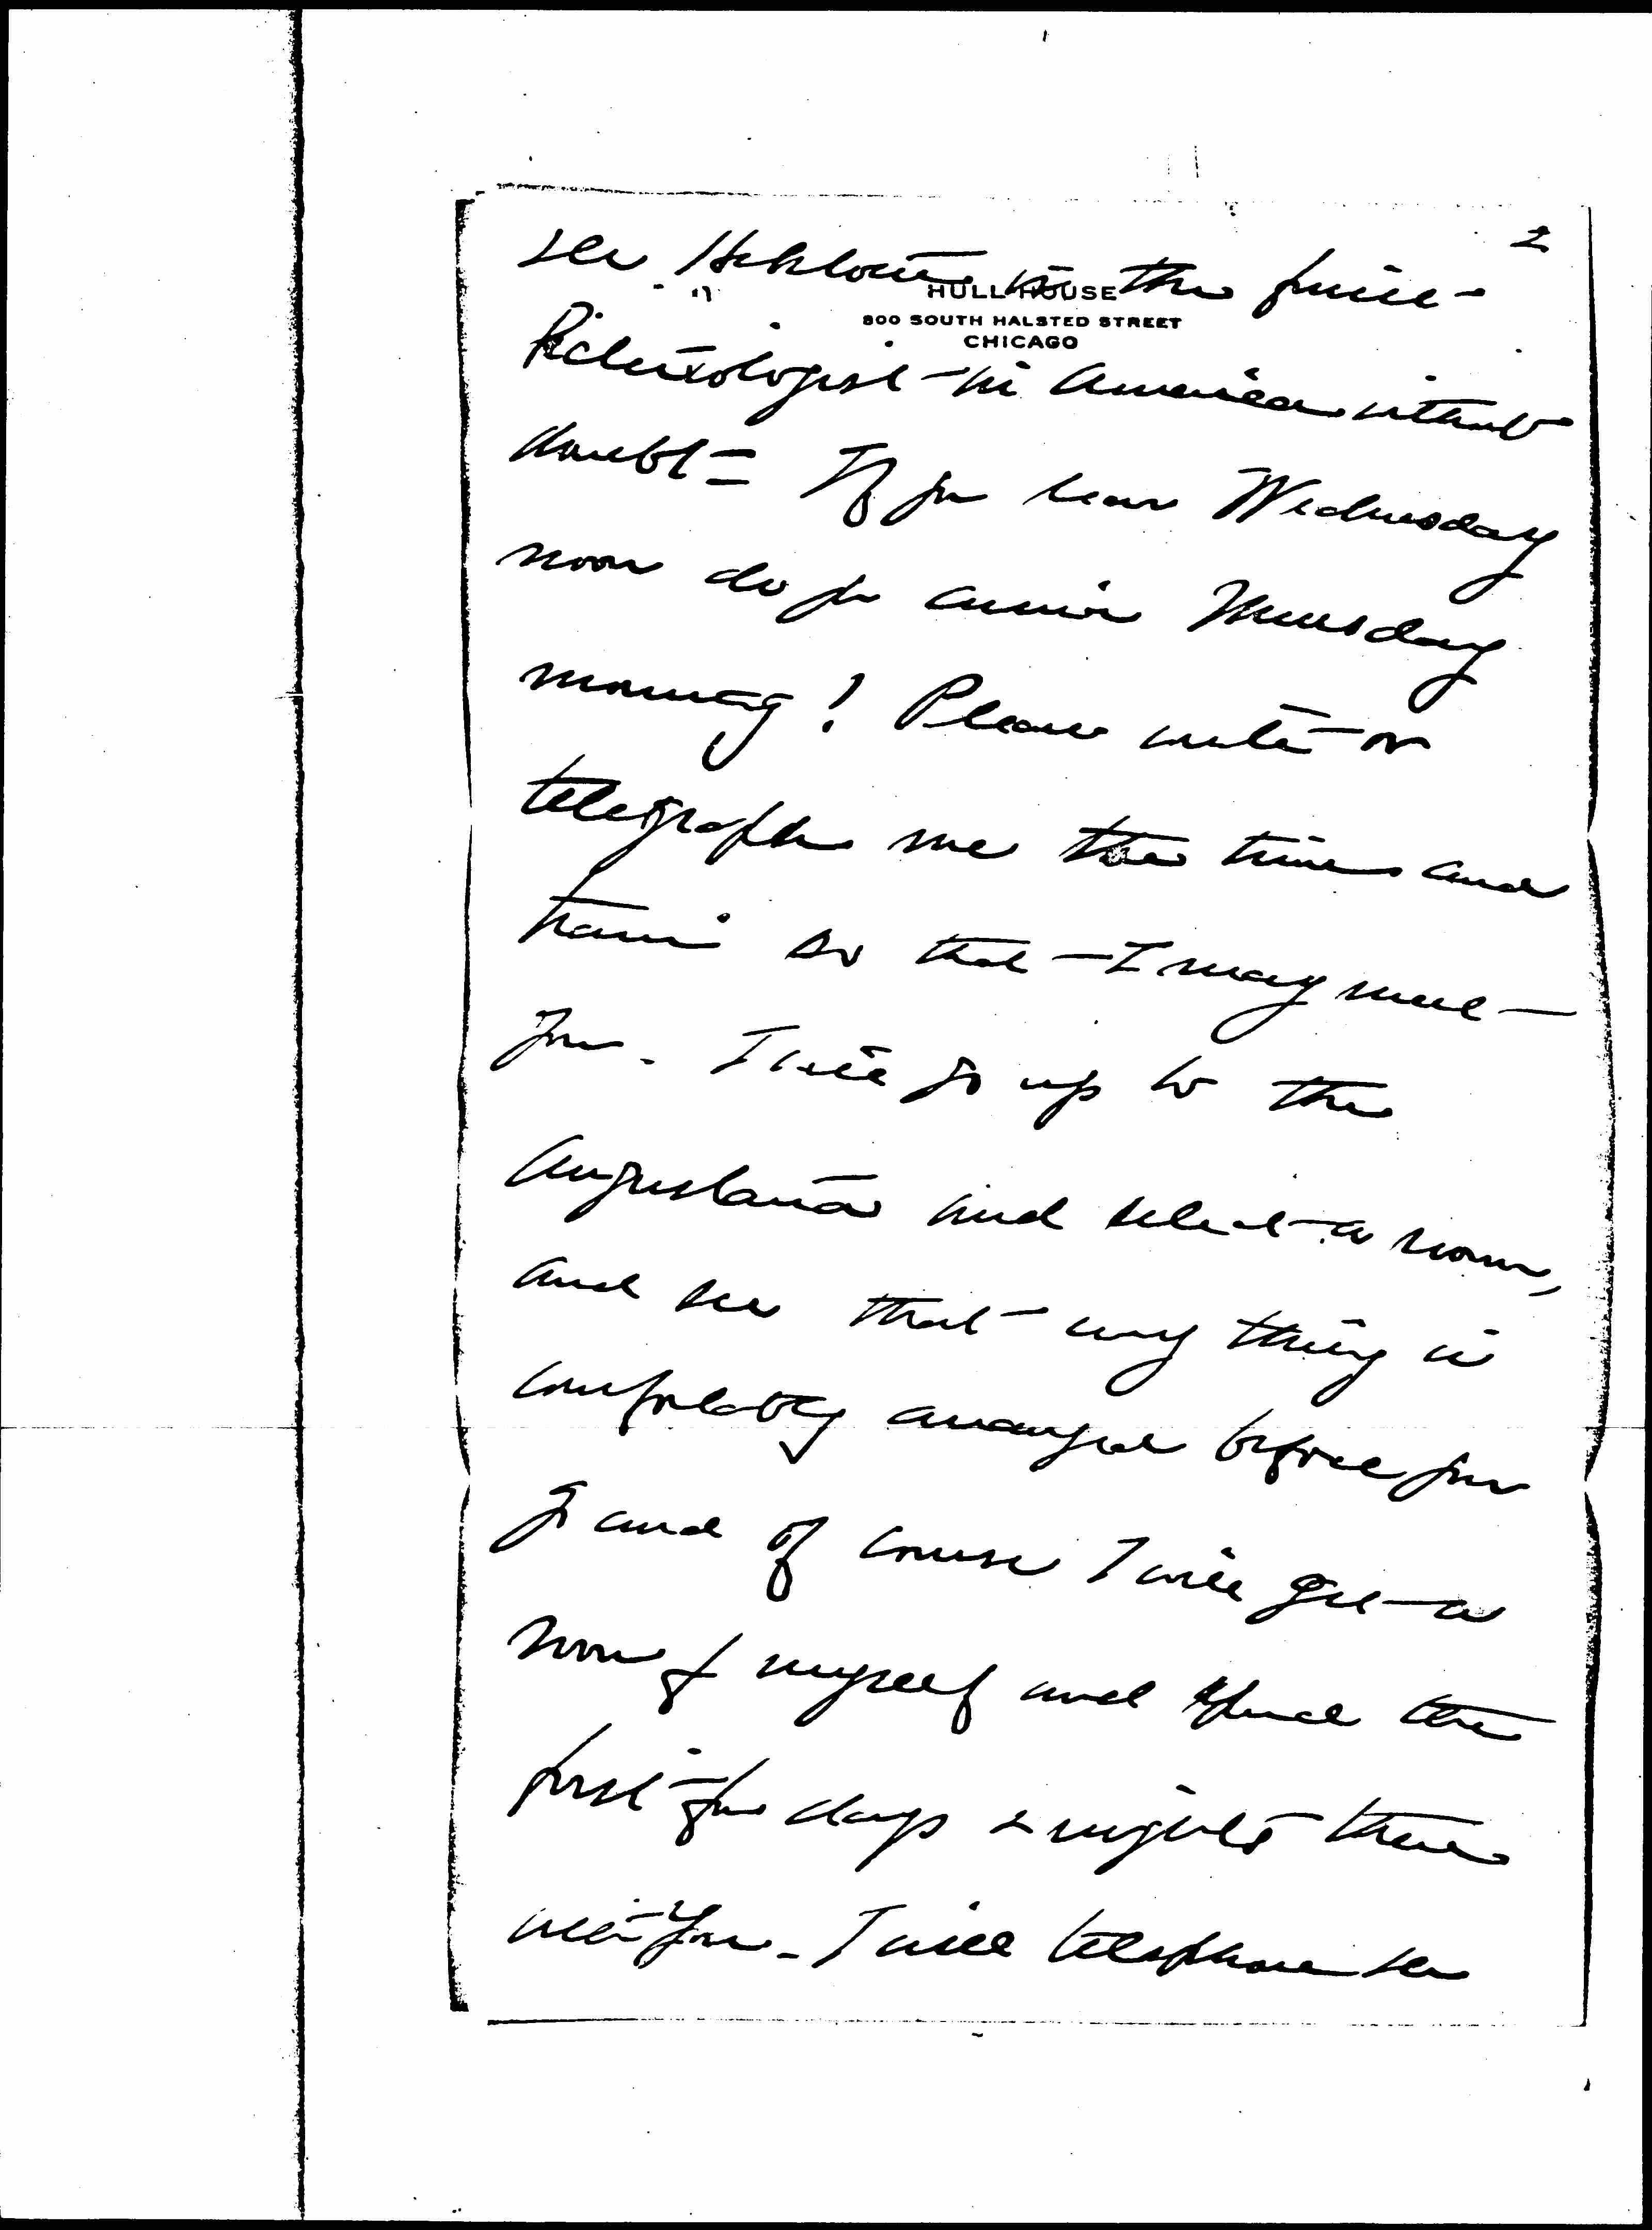 2
see Hektoen is the finest
HULL HOUSE
800 SOUTH HALSTED STREET
CHICAGO
in America without
doubt = If you leave Wednesday
noon do you arrive Thursday
morning! Please write or
telegraph me the time and
train so that I may meet
you. I will go up to the
Augustana and select a room,
and see that every thing is
comfortably arranged before you
go and of course I will get a
room f myself and spend the
first few days & nights there
with you. I will telephone